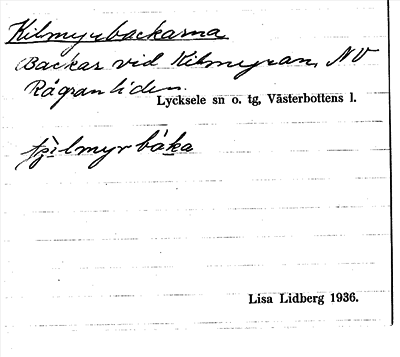 Kilmyrbackarna
Backar vid Kilmyran, NV
Rågranliden.
Lycksele sn o. tg, Västerbottens l.
tjilmyrbaka
Lisa Lidberg 1936.